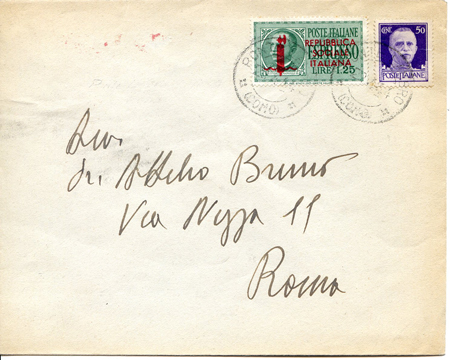 POSTE ITALIANE
REPUBBLICA
SOCIALE
ITALIANA
ESPRESSO
LIRE 1,25
CENT. 50
POSTE ITALIANE
(COMO)
(COMO)
Attilio Bruno
Via Nizza 11
Roma